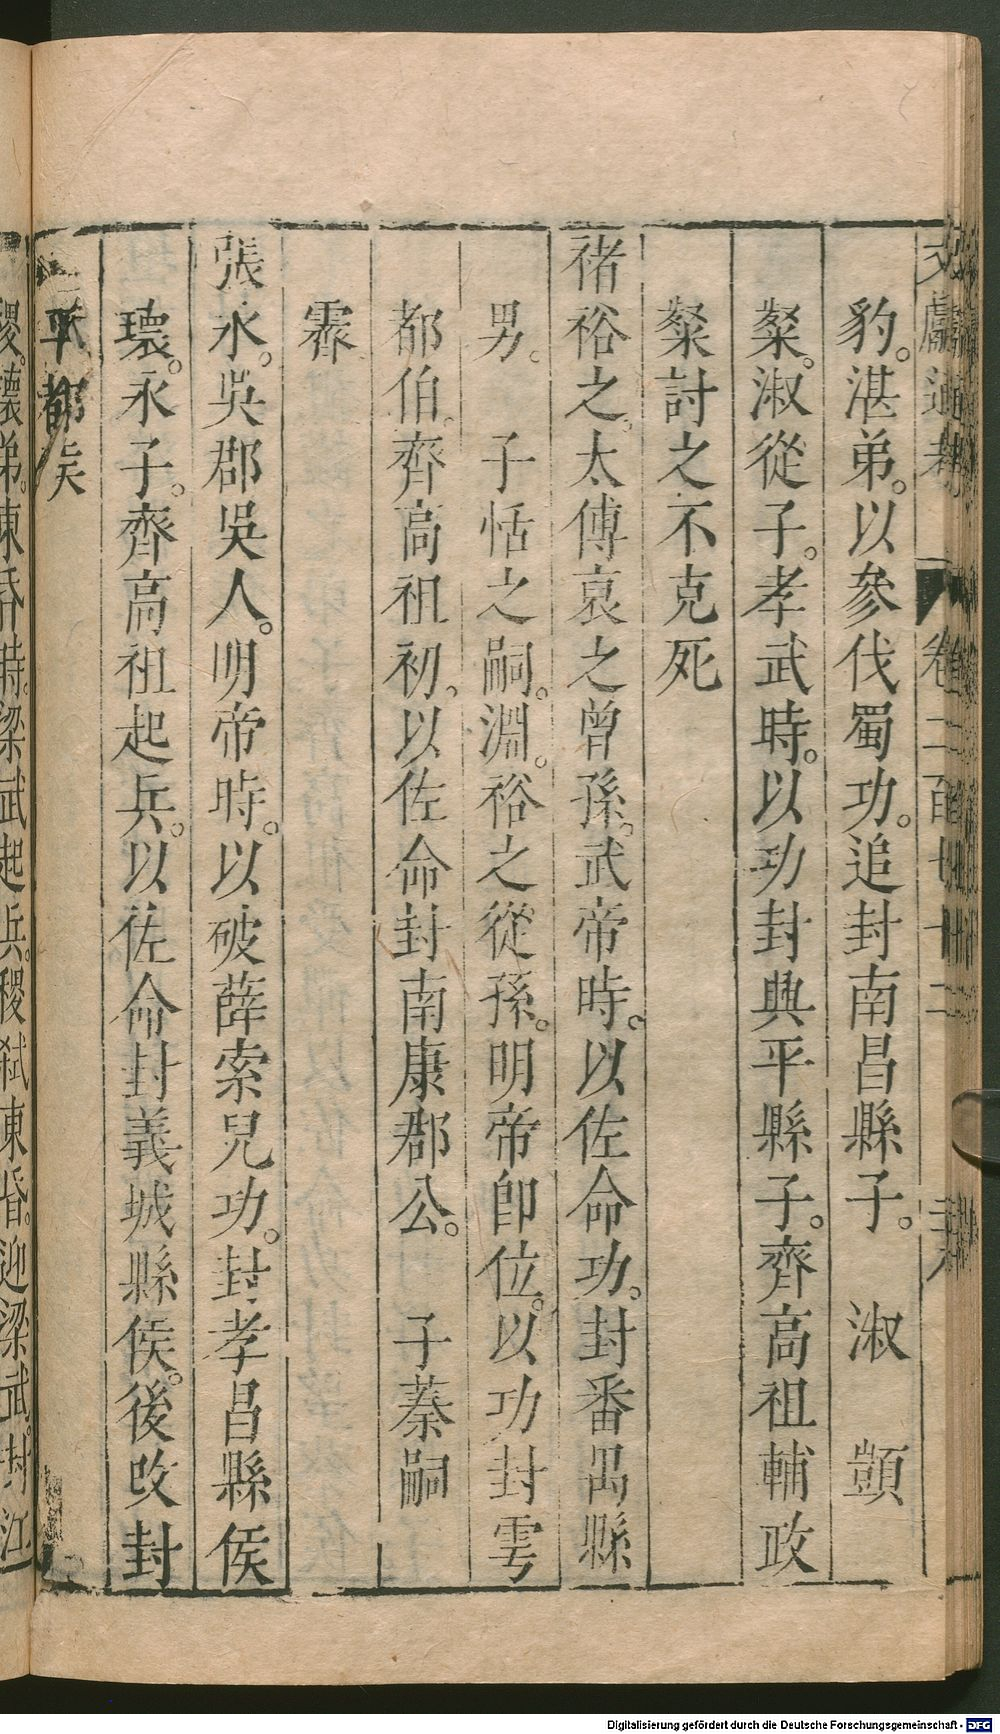 文獻通考 卷二百七十二 封
豹。湛弟。以參伐蜀功。追封南昌縣子。 淑 顗
粲。淑從子。孝武時。以功封興平縣子。齊高祖輔政
粲討之不克死
褚裕之。太傅裒之曾孫。武帝時。以佐命功。封番禺縣
男。 子恬之嗣。淵。裕之從孫。明帝卽位。以功封雩
都伯。齊高祖初。以佐命封南康郡公。 子蓁嗣
霽
張永。吳郡吳人。明帝時。以破薛索兒功。封孝昌縣侯
瓌。永子。齊高祖起兵。以佐命封義城縣侯。後改封
平都侯
稷。瓌弟。東昏時。梁武起兵。稷弒東昏。迎梁武。封江
Digitalisierung gefördert durch die Deutsche Forschungsgemeinschaft - DFG